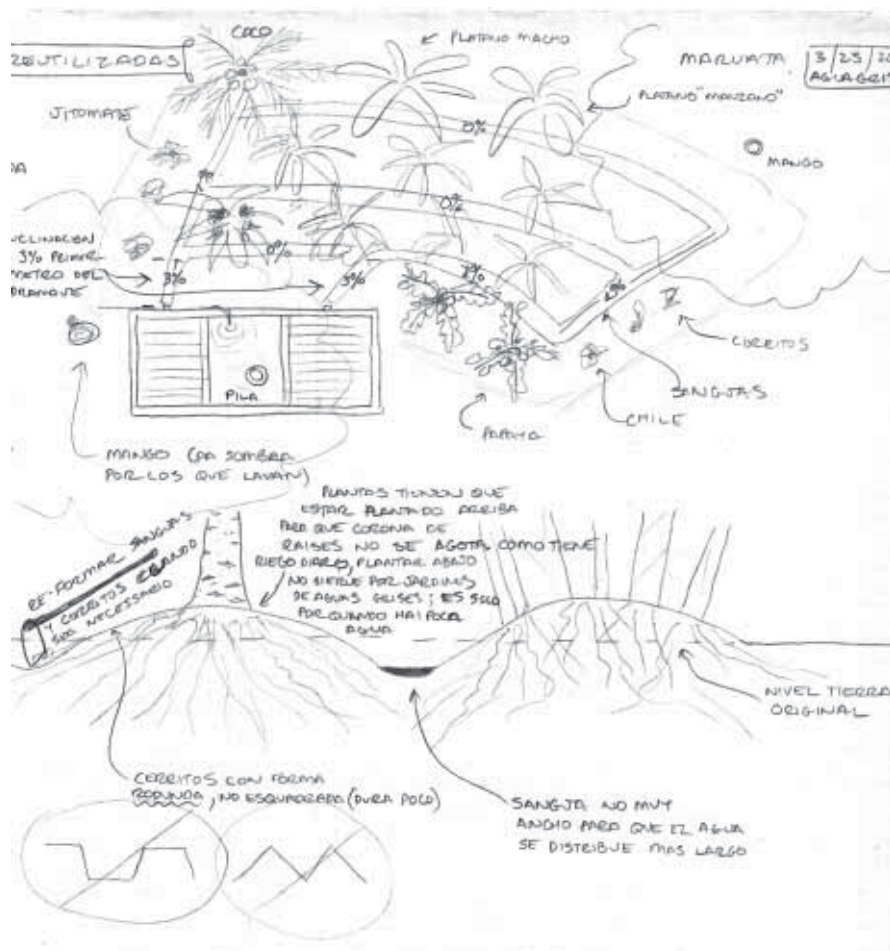 REUTILIZADAS
COCO
PLATANO MACHO
MARUATA
3/25/20
AGUAGRIS
JITOMATE
PLATANO "MANZANO"
0%
MANGO
0%
0%
INCLINACION
3% PRIMER
METRO DEL
DRANAJE
3%
3%
CERRITOS
SANGJAS
CHILE
PILA
PAPAYA
MANGO (DA SOMBRA
POR LOS QUE LAVAN)
PLANTAS TIENEN QUE
ESTAR PLANTADO ARRIBA
PARA QUE CORONA DE
RAISES NO SE AGOTA COMO TIENE
RIEGO DIARO, PLANTAR ABAJO
NO SIERVE POR JARDINES
DE AGUAS GRISES; ES SOLO
POR QUANDO HAI POCA
AGUA
RE-FORMAR SANGJAS
Y CERRITOS CUANDO
SEA NECESSARIO
NIVEL TIERRA
ORIGINAL
CERRITOS CON FORMA
REDONDA, NO ESQUADRADA (DURA POCO)
SANGJA NO MUY
ANGIO PARA QUE EL AGUA
SE DISTRIBUE MAS LARGO